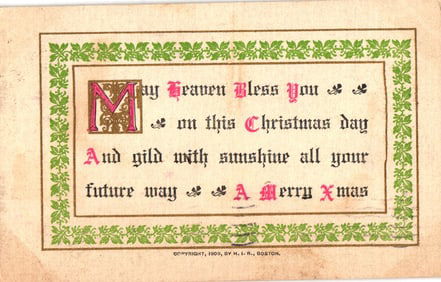 May Heaven Bless You
on this Christmas day
And gild with sunshine all your
future way A Merry Xmas
COPYRIGHT, 1909, BY H. I. R., BOSTON.